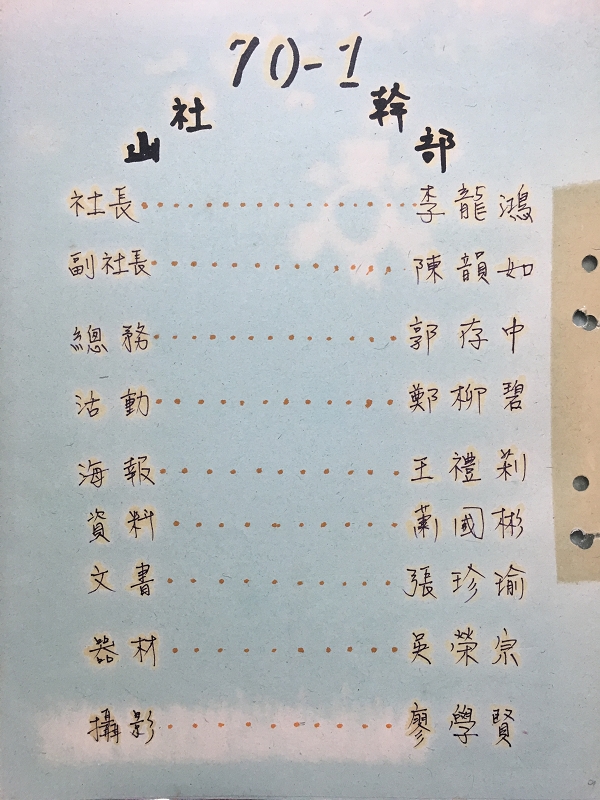 70-1
山社幹部
社長・・・・・・・・・・・・李龍鴻
副社長・・・・・・・・・・・陳韻如
總務・・・・・・・・・・・・郭存中
活動・・・・・・・・・・・・鄭柳碧
海報・・・・・・・・・・・・王禮莉
資料・・・・・・・・・・・・蕭國彬
文書・・・・・・・・・・張珍瑜
器材・・・・・・・・・・・吳榮宗
攝影・・・・・・・・・・・廖學賢